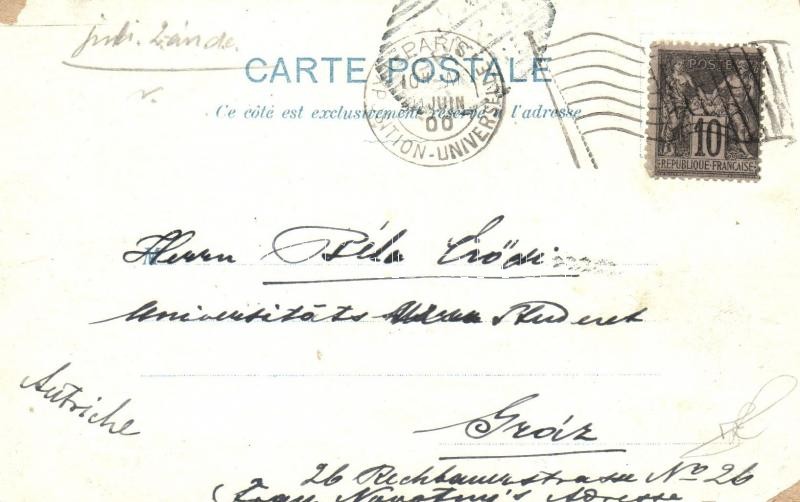 CARTE POSTALE
Ce côté est exclusivement réservé à l'adresse
PARIS EXPOSITION-UNIVERSELLE
JUIN
00
POSTE
10
RÉPUBLIQUE-FRANÇAISE
Herrn Béla Erődi
Universitäts Student
Autriche
Gráz
26 Rechbauerstrasse No 26
(Frau Novotny's Adresse